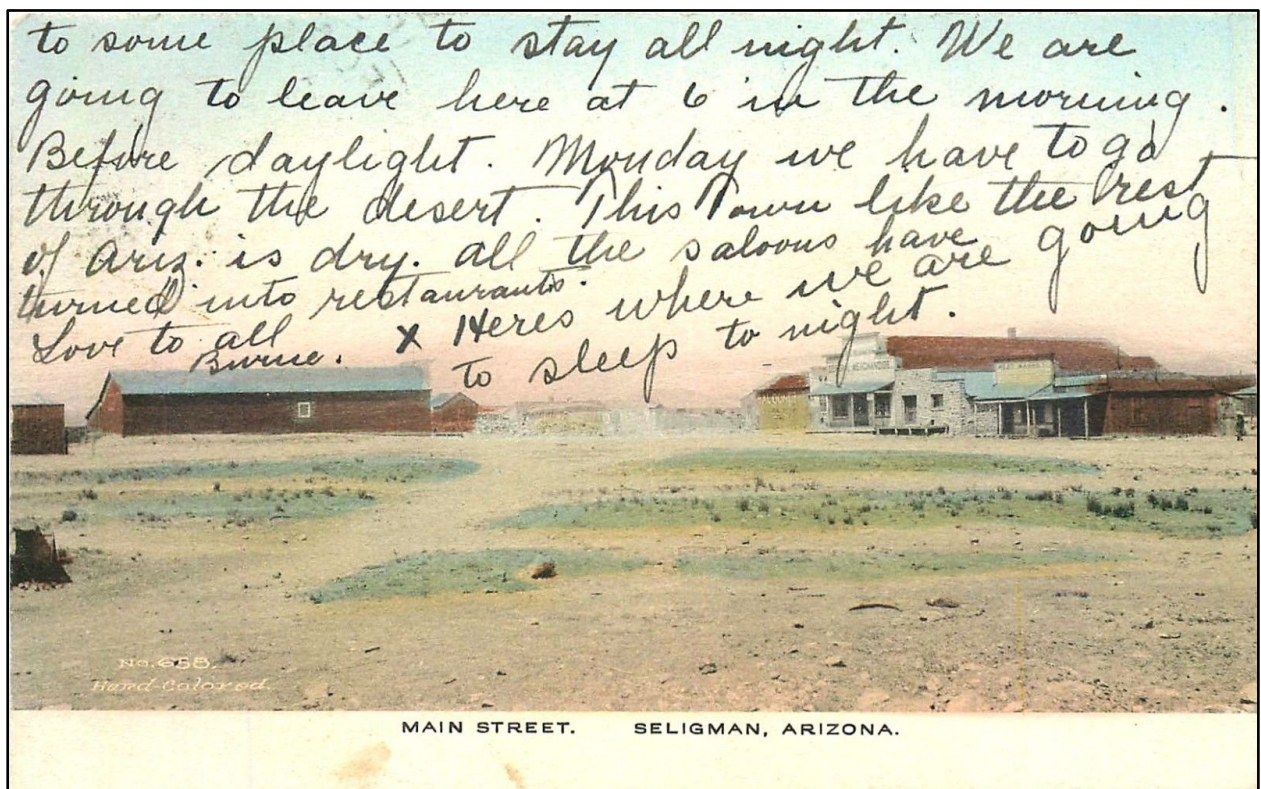 to some place to stay all night. We are
going to leave here at 6 in the morning.
Before daylight. Monday we have to go
through the desert. This Town like the rest
of Ariz. is dry. all the saloons have
turned into restaurants.
Love to all
X Heres where we are going
to sleep to night.
No. 658.
Hand-Colored.
MAIN STREET. SELIGMAN, ARIZONA.